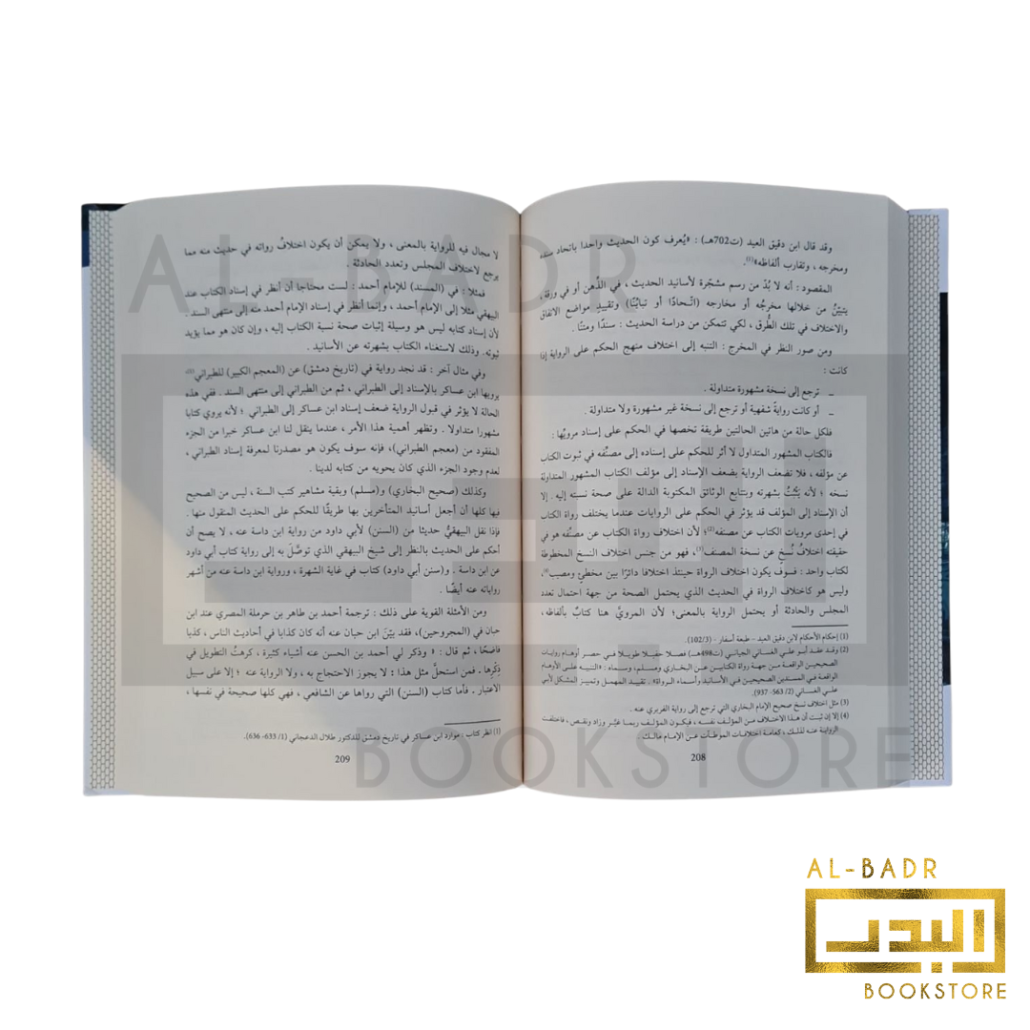 وقد قال ابن دقيق العيد (ت702هـ) : «يُعرف كون الحديث واحدا باتحاد سنده
ومخرجه ، وتقارب ألفاظه»(1).
المقصود : أنه لا بُدّ من رسم مشجّرة لأسانيد الحديث ، في الذّهن أو في ورقة ،
يتبيّنُ من خلالها مخرجُه أو مخارجه (اتّحادًا أو تباينًا) وتقييدِ مواضع الاتفاق
والاختلاف في تلك الطُّرق ، لكي تتمكن من دراسة الحديث : سندًا ومتنًا .
ومن صور النظر في المخرج : التنبه إلى اختلاف منهج الحكم على الرواية إذا
كانت :
ـ ترجع إلى نسخة مشهورة متداولة .
ـ أو كانت روايةً شفهية أو ترجع إلى نسخة غير مشهورة ولا متداولة .
فلكل حالة من هاتين الحالتين طريقة تخصها في الحكم على إسناد مرويِّها :
فالكتاب المشهور المتداول لا أثر للحكم على إسناده إلى مصنّفه في ثبوت الكتاب
عن مؤلفه ، فلا تضعف الرواية بضعف الإسناد إلى مؤلف الكتاب المشهور المتداولة
نسخه ؛ لأنه يَثبُتُ بشهرته وبتتابع الوثائق المكتوبة الدالة على صحة نسبته إليه . إلا
أن الإسناد إلى المؤلف قد يؤثر في الحكم على الروايات عندما يختلف رواة الكتاب
في إحدى مرويات الكتاب عن مصنفه(2)؛ لأن اختلاف رواة الكتاب عن مصنّفه هو في
حقيقته اختلافُ نُسخ عن نسخة المصنف(3)، فهو من جنس اختلاف النسخ المخطوطة
لكتاب واحد : فسوف يكون اختلاف الرواة حينئذ اختلافا دائرًا بين مخطئ ومصيب(4)،
وليس هو كاختلاف الرواة في الحديث الذي يحتمل الصحة من جهة احتمال تعدد
المجلس والحادثة أو يحتمل الرواية بالمعنى؛ لأن المرويَّ هنا كتابٌ بألفاظه ،
(1) إحكام الأحكام لابن دقيق العيد – طبعة أسفار – (102/3).
(2) وقد عقد أبو علي الغساني الجياني (ت498هـ) فصلا حفيلا طويلا في حصر أوهام روايات
الصحيحين الواقعة من جهة رواة الكتابين عن البخاري ومسلم، وسماه : «التنبيه على الأوهام
الواقعة في المسندين الصحيحين في الأسانيد وأسماء الرواة» . تقييد المهمل وتمييز المشكل لأبي
علي الغساني (2/ 563- 937).
(3) مثل اختلاف نسخ صحيح الإمام البخاري التي ترجع إلى رواية الفربري عنه .
(4) إلا إن ثبت أن هذا الاختلاف من المؤلف نفسه ، فيكون المؤلف ربما غيّر وزاد ونقص ، فاختلفت
الرواية عنه لذلك ، كعامة اختلافات الموطآت عن الإمام مالك .
208
لا مجال فيه للرواية بالمعنى ، ولا يمكن أن يكون اختلافُ رواته في حديث منه مما
يرجع لاختلاف المجلس وتعدد الحادثة .
فمثلا : في (المسند) للإمام أحمد : لست محتاجا أن أنظر في إسناد الكتاب عند
البيهقي مثلا إلى الإمام أحمد ، وإنما أنظر في إسناد الإمام أحمد منه إلى منتهى السند .
لأن إسناد كتابه ليس هو وسيلة إثبات صحة نسبة الكتاب إليه ، وإن كان هو مما يؤيد
ثبوته. وذلك لاستغناء الكتاب بشهرته عن الأسانيد .
وفي مثال آخر : قد نجد رواية في (تاريخ دمشق) عن (المعجم الكبير) للطبراني(1)،
يرويها ابن عساكر بالإسناد إلى الطبراني ، ثم من الطبراني إلى منتهى السند. ففي هذه
الحالة لا يؤثر في قبول الرواية ضعف إسناد ابن عساكر إلى الطبراني ؛ لأنه يروي كتابا
مشهورا متداولا . وتظهر أهمية هذا الأمر ، عندما ينقل لنا ابن عساكر خبرا من الجزء
المفقود من (معجم الطبراني)، فإنه سوف يكون هو مصدرنا لمعرفة إسناد الطبراني ،
لعدم وجود الجزء الذي كان يحويه من كتابه لدينا .
وكذلك (صحيح البخاري) و(مسلم) وبقية مشاهير كتب السنة ، ليس من الصحيح
فيها كلها أن أجعل أسانيد المتأخرين بها طريقًا للحكم على الحديث المنقول منها .
فإذا نقل البيهقيُّ حديثا من (السنن) لأبي داود من رواية ابن داسة عنه ، لا يصح أن
أحكم على الحديث بالنظر إلى شيخ البيهقي الذي توصَّلَ به إلى رواية كتاب أبي داود
عن ابن داسة . و(سنن أبي داود) كتاب في غاية الشهرة ، ورواية ابن داسة عنه من أشهر
رواياته عنه أيضًا .
ومن الأمثلة القوية على ذلك : ترجمة أحمد بن طاهر بن حرملة المصري عند ابن
حبان في (المجروحين)، فقد بيّن ابن حبان عنه أنه كان كذابا في أحاديث الناس ، كذابا
فاضحًا ، ثم قال : « وذكر لي أحمد بن الحسن عنه أشياء كثيرة ، كرهتُ التطويل في
ذِكْرِها . فمن استحلَّ مثل هذا : لا يجوز الاحتجاج به ، ولا الرواية عنه ؛ إلا على سبيل
الاعتبار . فأما كتاب (السنن) التي رواها عن الشافعي ، فهي كلها صحيحة في نفسها ،
(1) انظر كتاب : موارد ابن عساكر في تاريخ دمشق للدكتور طلال الدعجاني (1/ 633- 636).
209
AL-BADR
BOOKSTORE
AL-BADR
البدر
BOOKSTORE